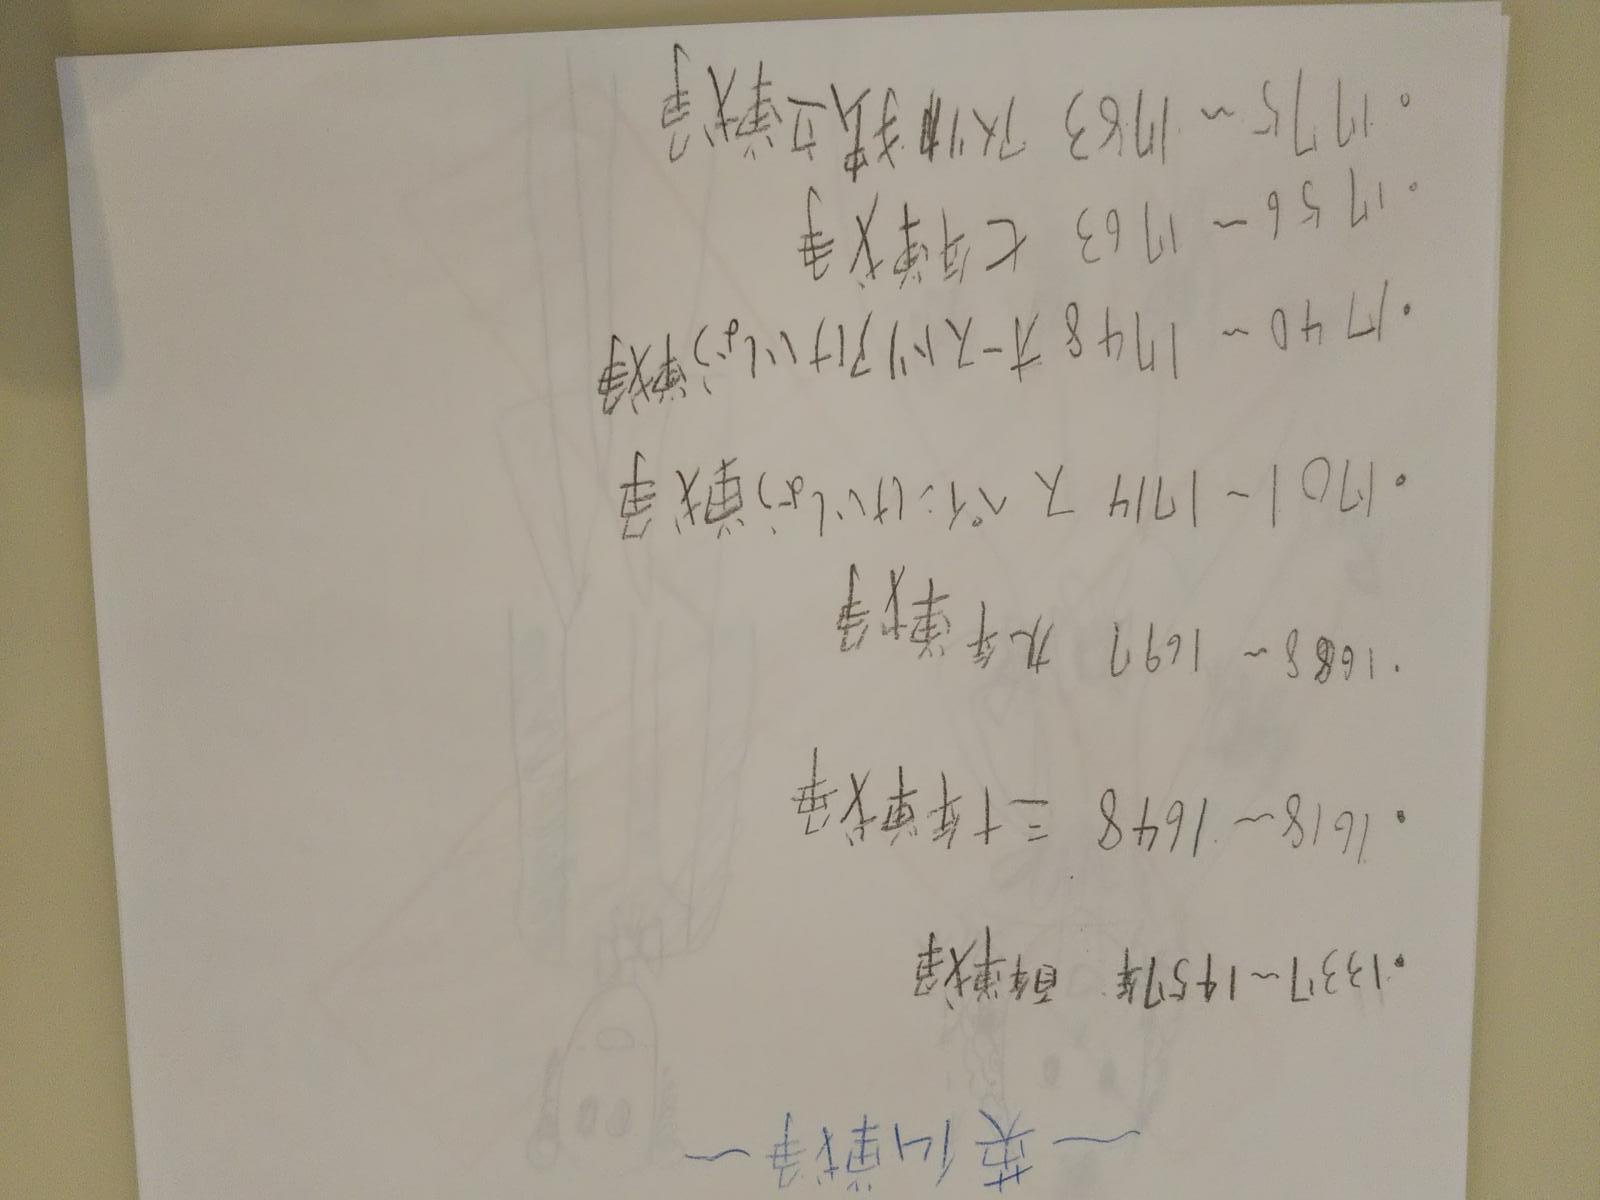 〜英仏戦争〜
・1337〜1457年 百年戦争
・1618〜1648 三十年戦争
・1688〜1697 九年戦争
・1701〜1714 スペインけいしょう戦争
・1740〜1748 オーストリアけいしょう戦争
・1756〜1763 七年戦争
・1775〜1783 アメリカ独立戦争